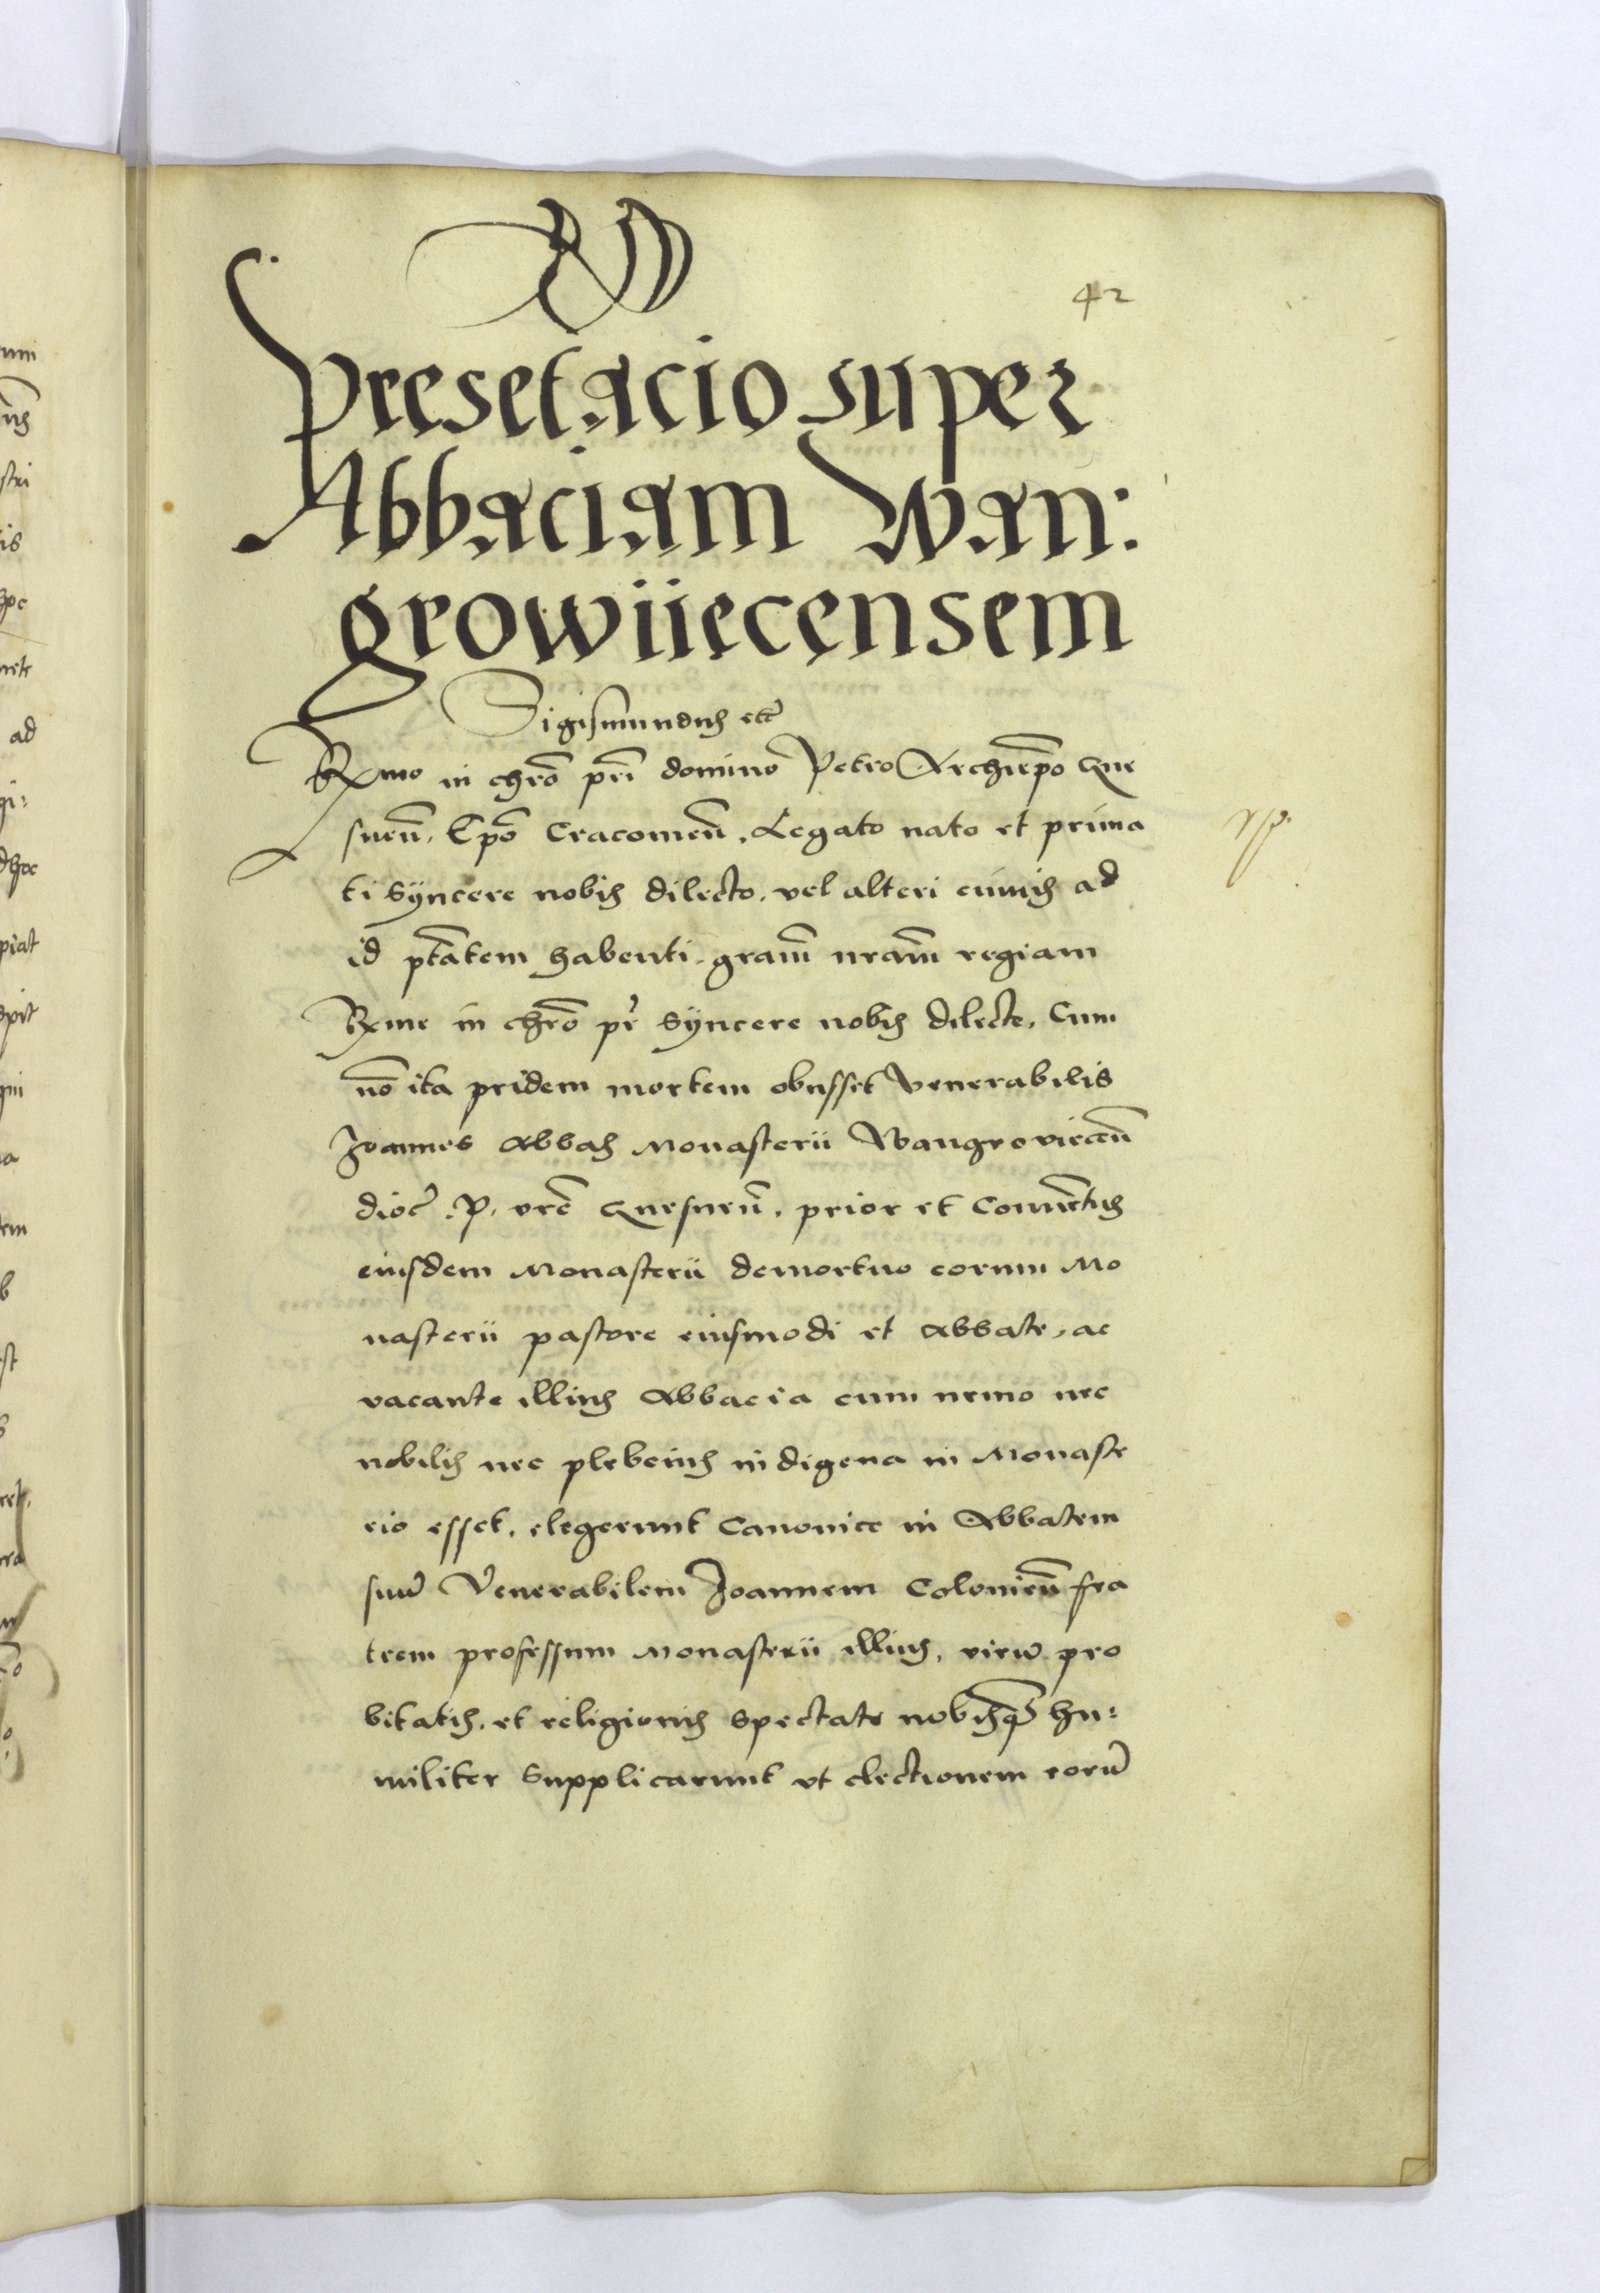 42
Presetacio super
Abbaciam Wan:
growiiecensem
Sigismundus etc
Rxmo in chro pri domino Petro Archiepo Gne
snen. Epo Cracovien. Legato nato et prima
ti Syncere nobis dilecto. vel alteri cuivis ad
id ptatem habenti. gram nram regiam
Rxme in chro pr Syncere nobis dilecte. Cum
no ita pridem mortem obiisset Venerabilis
Joannes Abbas Monasterii Wangroviecen
dioc. P. vre Gnesnen. prior et Conventus
eiusdem Monasterii demortuo eorum Mo
nasterii pastore eiusmodi et Abbate, ac
vacante illius Abbacia cum nemo nec
nobilis nec plebeius indigena in Monaste
rio esset. elegerunt Canonice in Abbatem
suum Venerabilem Joannem Colonien fra
trem professum Monasterii illius, virum pro
bitatis. et religionis Spectate nobisq hu:
militer Supplicarunt ut electionem eorum